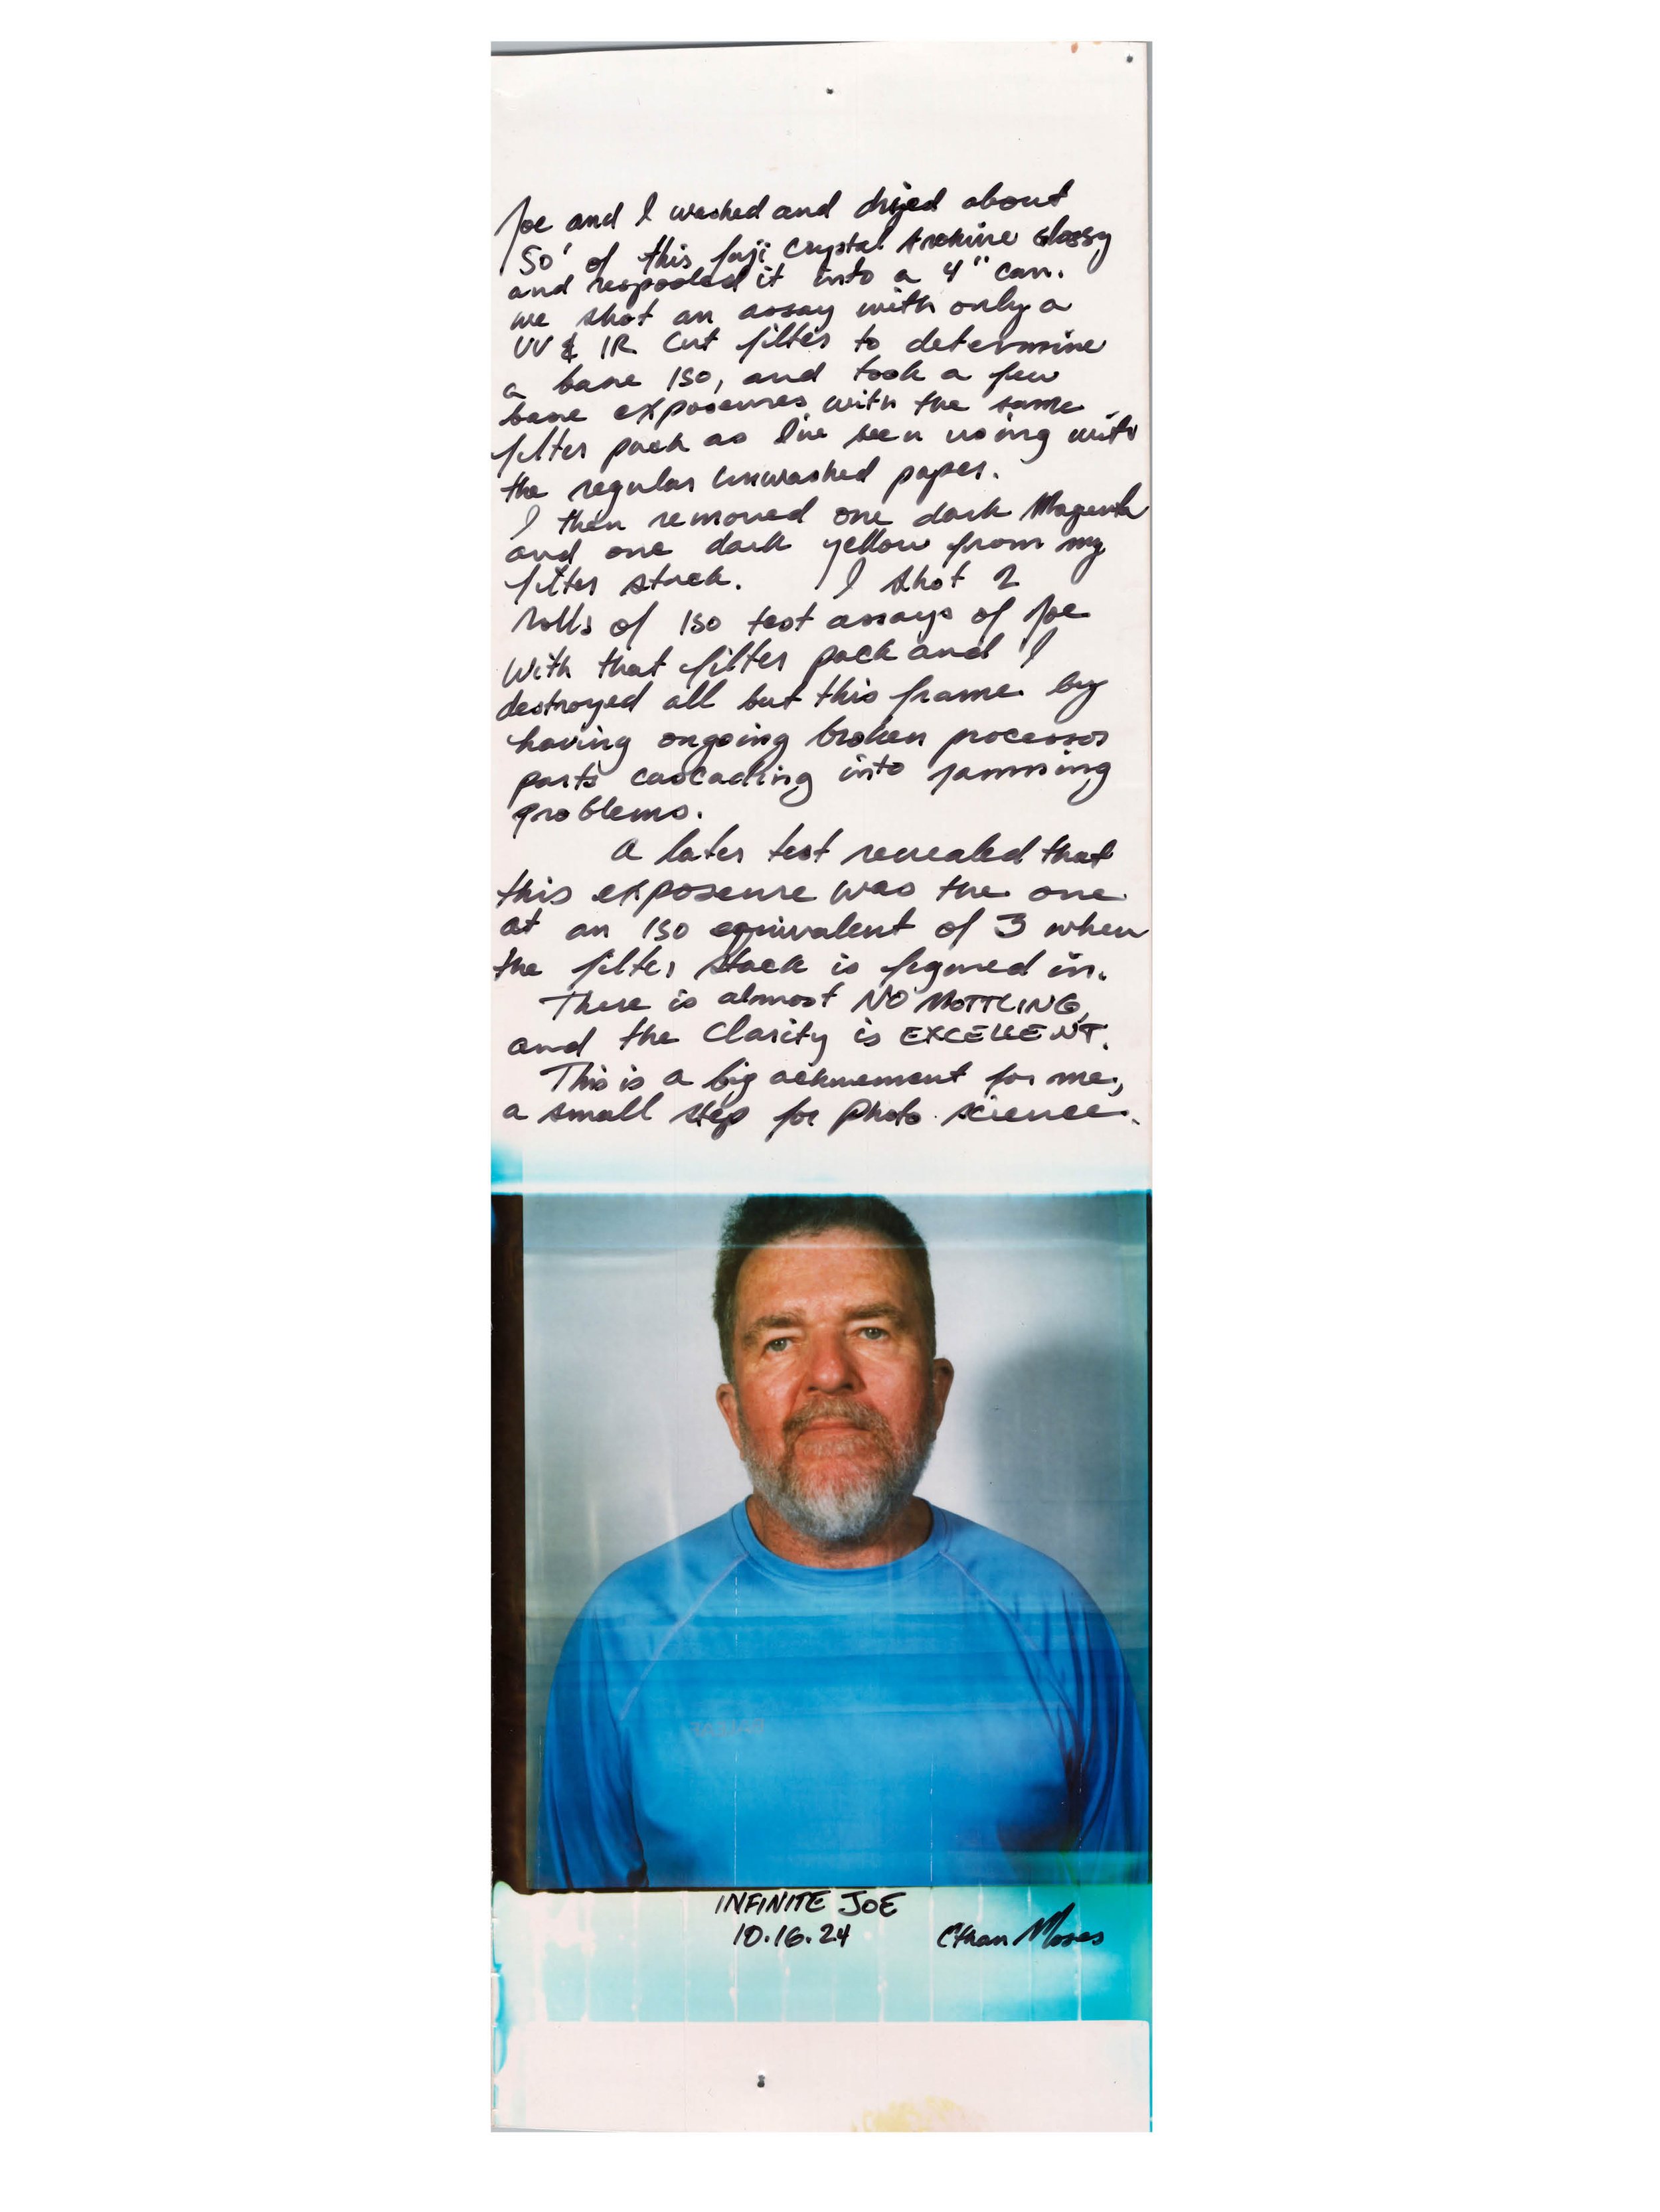 Joe and I washed and dryed about
50' of this fuji Crystal Archive Glossy
and respooled it into a 4" can.
we shot an assay with only a
UV & IR Cut filter to determine
a base ISO, and took a few
base exposures with the same
filter pack as I've been using with
the regular unwashed paper.
I then removed one dark Magenta
and one dark yellow from my
filter stack. I shot 2
rolls of ISO test assays of Joe
With that filter pack and I
destroyed all but this frame by
having ongoing broken processor
parts cascading into jamming
problems.
A later test revealed that
this exposure was the one
at an ISO equivalent of 3 when
the filter stack is figured in.
There is almost NO MOTTLING,
and the Clarity is EXCELLENT.
This is a big achievement for me,
a small step for Photo science.
INFINITE JOE
10.16.24 Ethan Moses